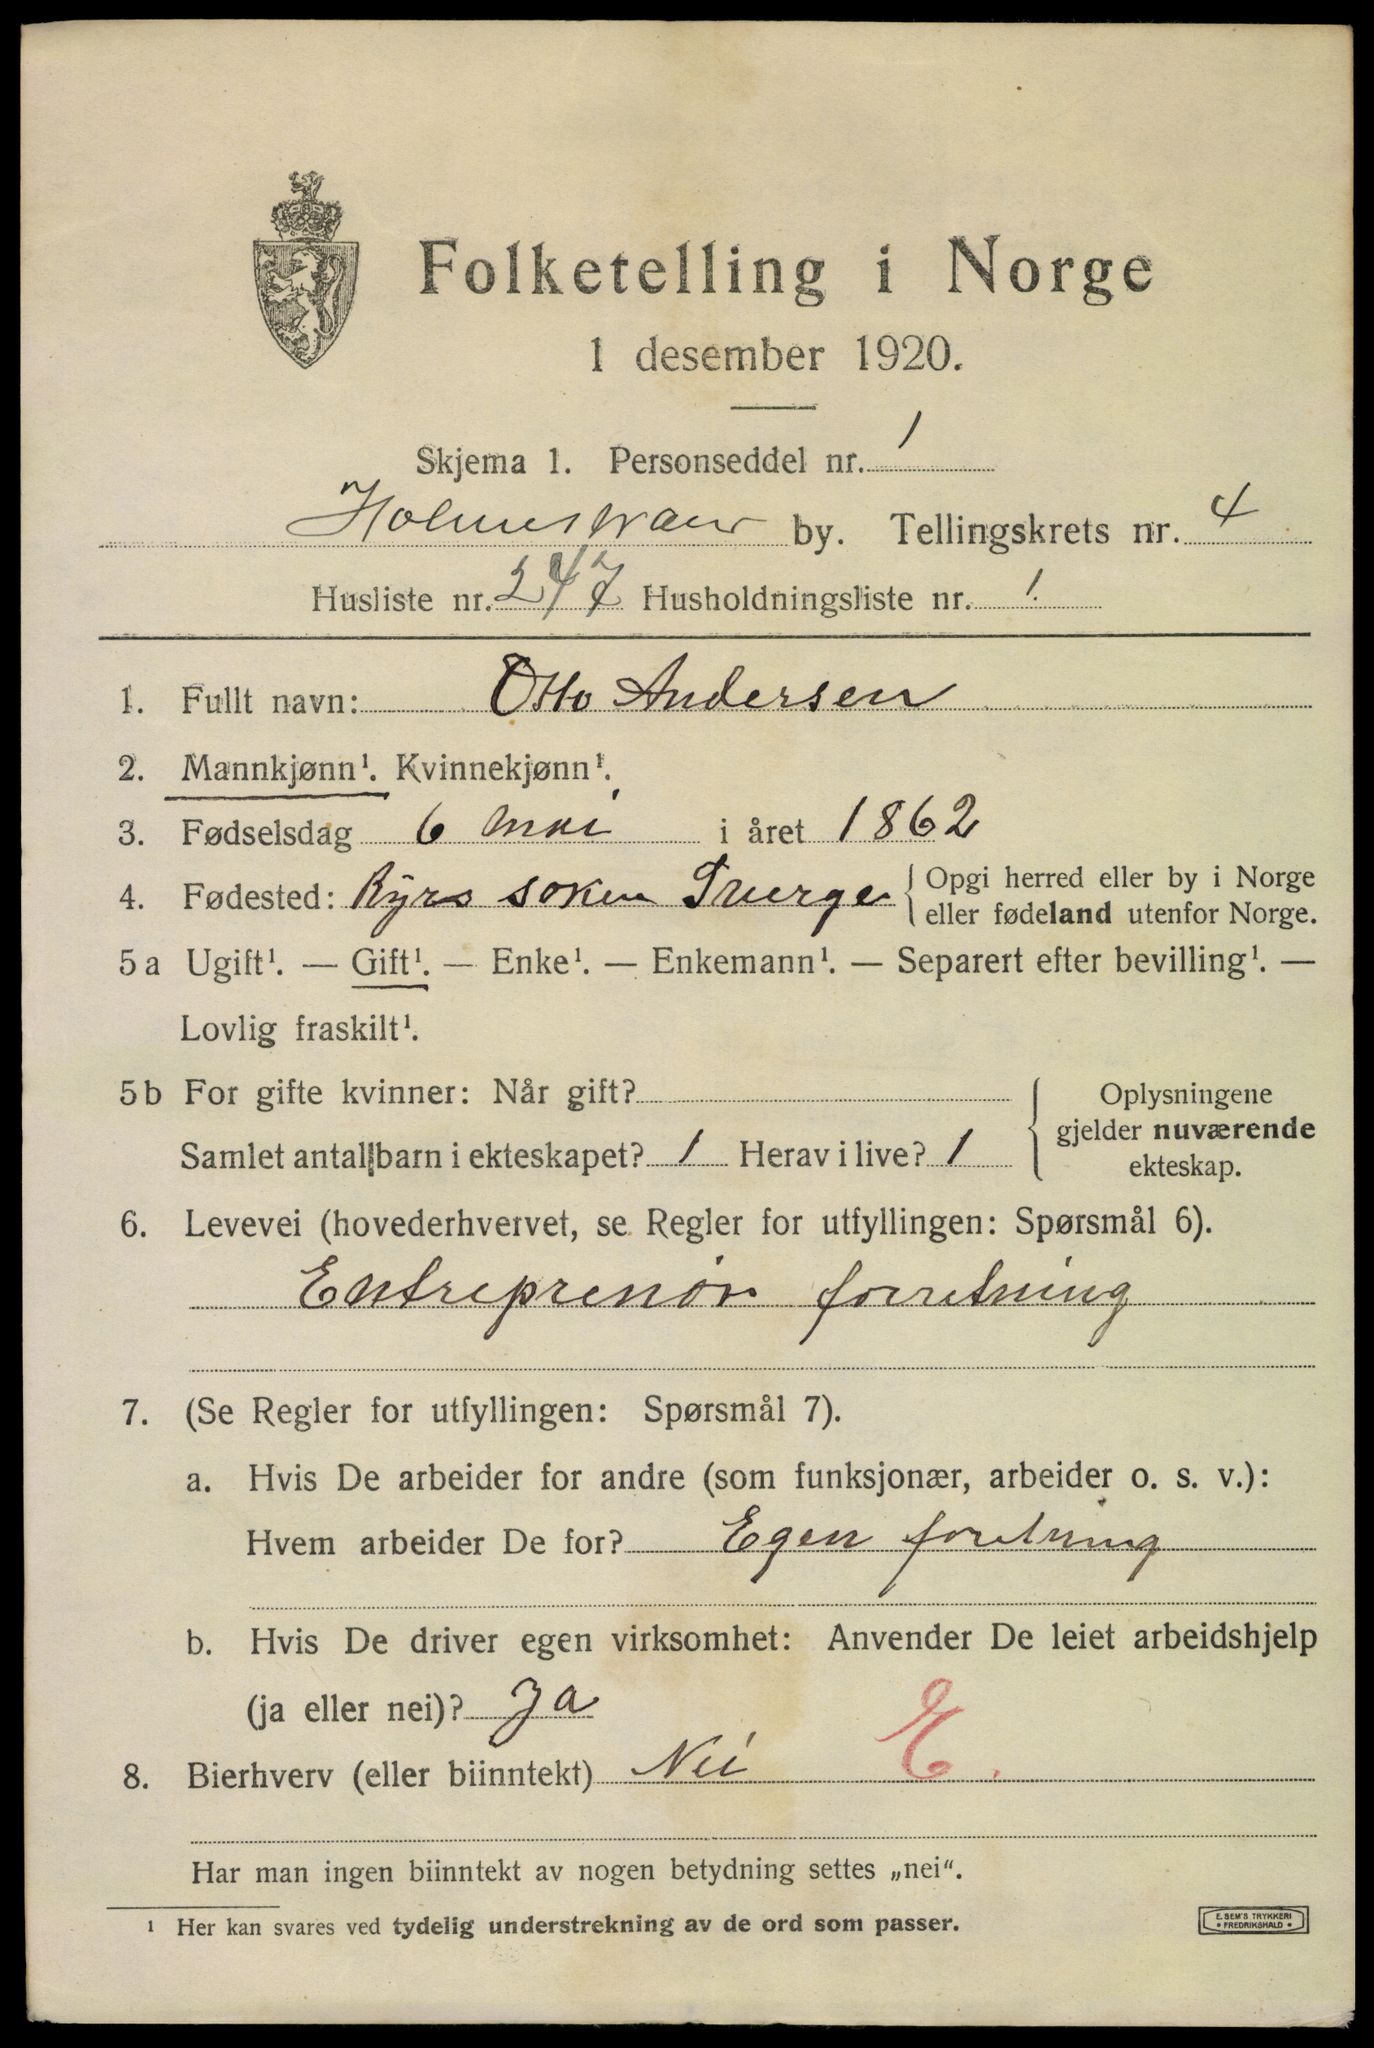 Folketelling i Norge
1 desember 1920.
Skjema 1. Personseddel nr. 1
Holmestrand by. Tellingskrets nr. 4
Husliste nr. 247 Husholdningsliste nr. 1.
1. Fullt navn: Otto Andersen
2. Mannkjønn¹. Kvinnekjønn¹.
3. Fødselsdag 6 mai i året 1862
4. Fødested: Ryrs soken Sverge { Opgi herred eller by i Norge
eller fødeland utenfor Norge.
5a Ugift¹. — Gift¹. — Enke¹. — Enkemann¹. — Separert efter bevilling¹. —
Lovlig fraskilt¹.
5b For gifte kvinner: Når gift?
Samlet antal barn i ekteskapet? 1 Herav i live? 1
Oplysningene
gjelder nuværende
ekteskap.
6. Levevei (hovederhvervet, se Regler for utfyllingen: Spørsmål 6).
Entreprenør forretning
7. (Se Regler for utfyllingen: Spørsmål 7).
a. Hvis De arbeider for andre (som funksjonær, arbeider o. s. v.):
Hvem arbeider De for? Egen foretning
b. Hvis De driver egen virksomhet: Anvender De leiet arbeidshjelp
(ja eller nei)? Ja E.
8. Bierhverv (eller biinntekt) Nei
Har man ingen biinntekt av nogen betydning settes „nei“.
¹ Her kan svares ved tydelig understrekning av de ord som passer.
E. SEM'S TRYKKERI
• FREDRIKSHALD •